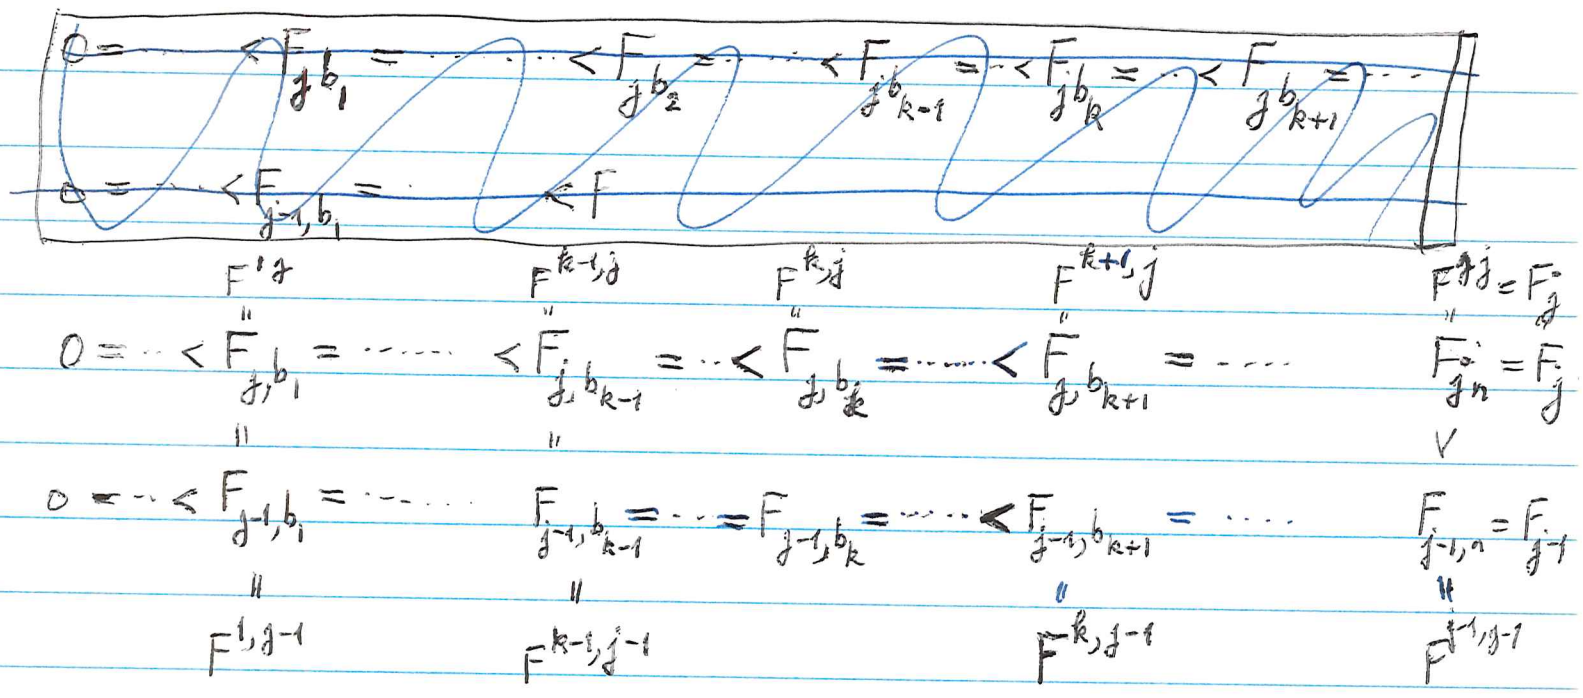 0 = ...... < F_{j b_1} = ......... < F_{j b_2} = ...... < F_{j b_{k-1}} = .. < F_{j b_k} = ... < F_{j b_{k+1}} = .....
0 = ..... < F_{j-1, b_1} = . < F
F^{1j} F^{k-1,j} F^{k,j} F^{k+1,j} F^{jj} = F_j
" " " " "
0 = ... < F_{j,b_1} = ....... < F_{j,b_{k-1}} = ... < F_{j,b_k} = ....... < F_{j,b_{k+1}} = ..... F_{jn} = F_j
" " ∨
0 = ... < F_{j-1,b_1} = ....... F_{j-1,b_{k-1}} = ... = F_{j-1,b_k} = ...... < F_{j-1,b_{k+1}} = ..... F_{j-1,n} = F_{j-1}
" " " "
F^{1,j-1} F^{k-1,j-1} F^{k,j-1} F^{j-1,j-1}